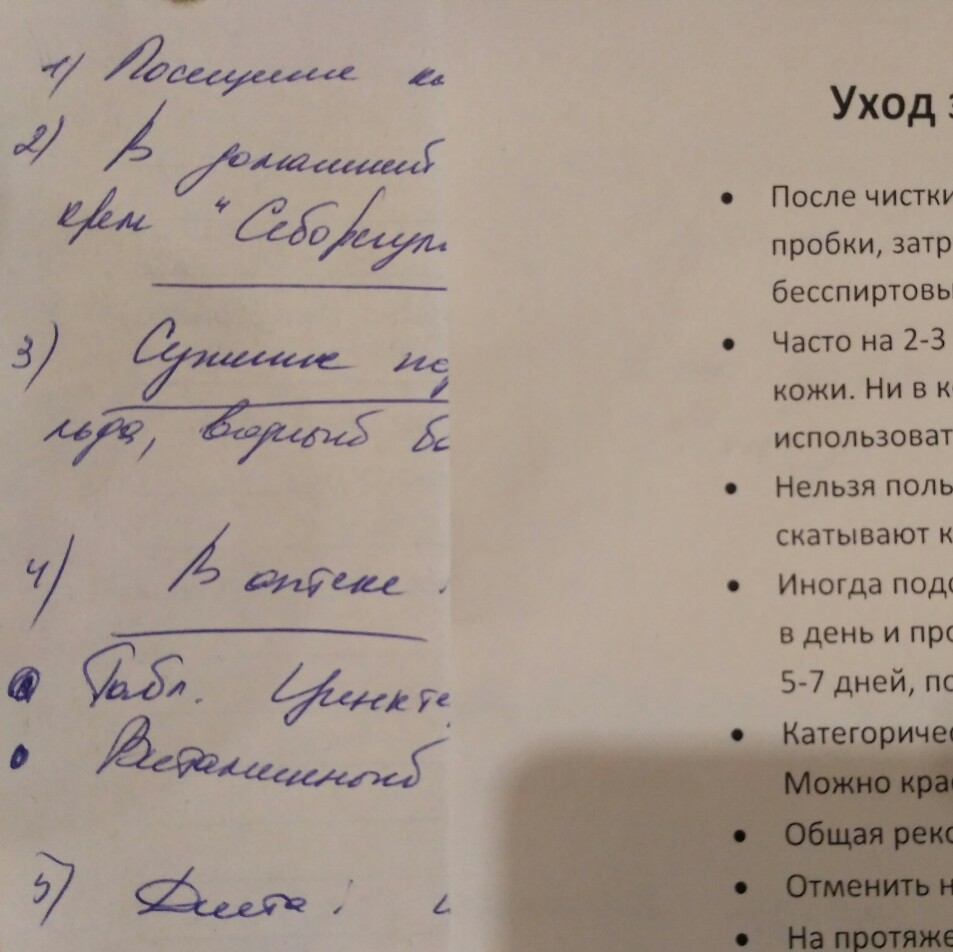 1) Посещение ко
2) В домашний
крем "Себорегул
3) Сужение по
льда, водный бо
4) В аптеке:
Табл. Цинкте
Витаминный
5) Диета!
Уход з
• После чистки
пробки, затр
бесспиртовы
• Часто на 2-3
кожи. Ни в к
использоват
• Нельзя поль
скатывают к
• Иногда подс
в день и про
5-7 дней, по
• Категоричес
Можно крас
• Общая реко
• Отменить н
• На протяже